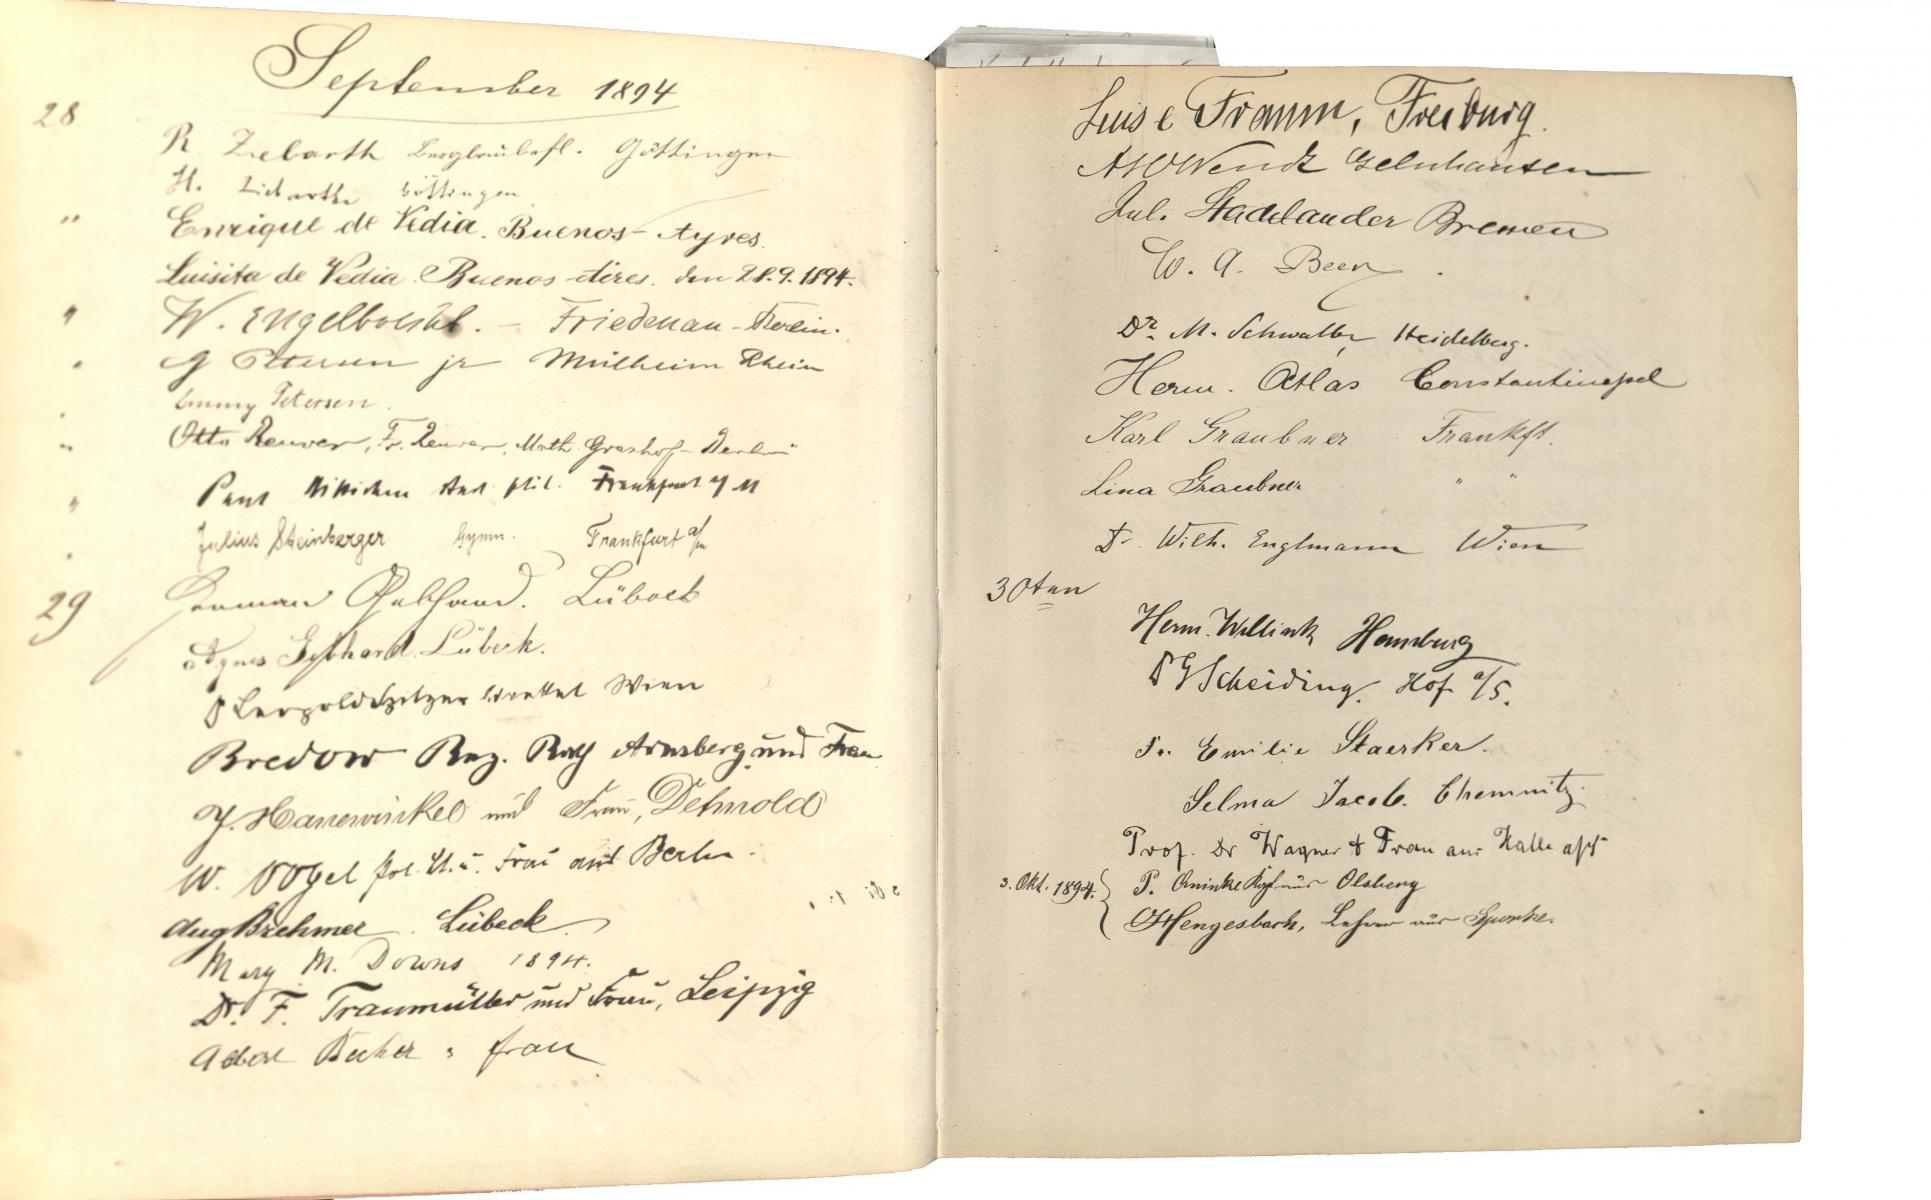 September 1894
28
R. Ziebarth Göttingen
H. Ziebarth Göttingen
" Enrique de Vedia. Buenos-Ayres.
Luisita de Vedia. Buenos-Aires. den 28.9.1894.
" W. - Friedenau-Berlin.
G Petersen jr Mülheim Rhein
Emmy Petersen.
Otto Reuver, Fr. Reuver, Math. Grashof-Berlin
" Paul phil. Frankfurt a/M
Julius Steinberger Gymn. Frankfurt a/m
29 Gebhard. Lübeck
Agnes Gebhard. Lübeck.
Dr Leopold Spitzer Wien
Bredow Reg. Rath Arnsberg und Frau
J. Hanewinkel und Frau, Detmold
W. Vogel u. Frau aus Berlin.
Aug Brehmer. Lübeck.
Mary M. Downs 1894.
Dr. F. Traumüller und Frau, Leipzig
Becker u frau
Luise Framm, Freiburg.
Wendt Gelnhausen
Jul. Stadelander Bremen
W. A. Beer
Dr. M. Schwalbe Heidelberg.
Herm. Atlas Constantinopel
Karl Graubner Frankft.
Lina Graubner " "
Dr. Wilh. Englmann Wien
30ten
Herm. Willink Hamburg
Dr G Scheiding. Hof a/S.
Fr. Emilie Staerker.
Selma Jacob. Chemnitz.
Prof. Dr Wagner & Frau aus Halle a/S
3. Okt. 1894. P. aus Olsberg
Hengesbach, Lehrer aus